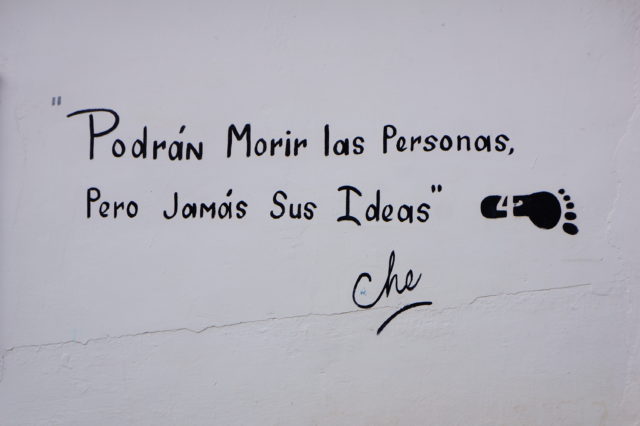 "Podrán Morir las Personas,
Pero Jamás Sus Ideas"
42
Che